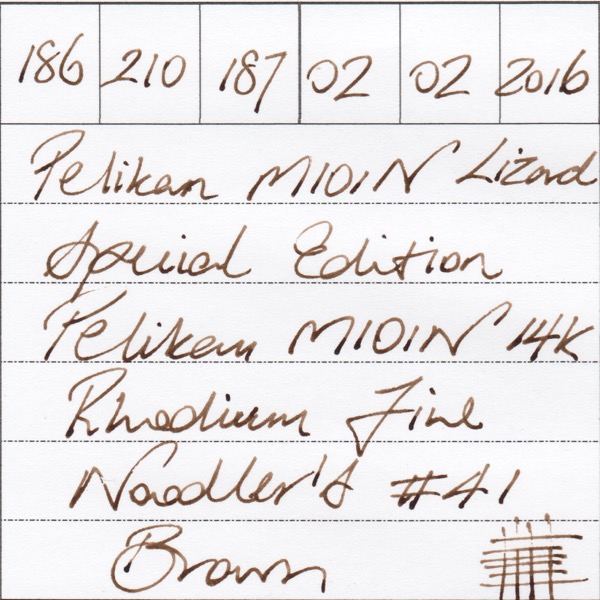 186 210 187 02 02 2016
Pelikan M101N Lizard
Special Edition
Pelikan M101N 14K
Rhodium Fine
Noodler's #41
Brown